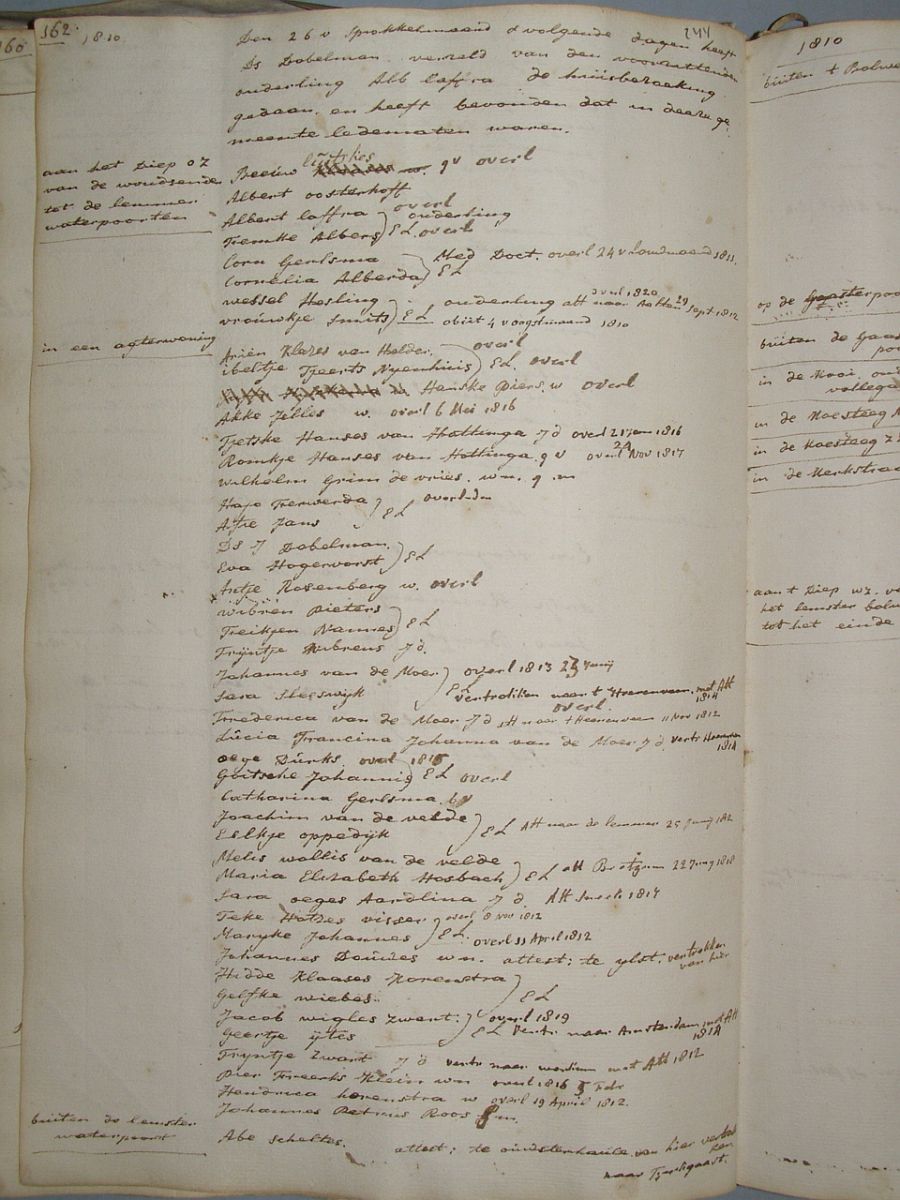 162 1810 244
Den 26 v Sprokkelmaand & volgende dagen heeft
Ds Dobelman verzeld van den
ouderling Alb Laffra de huisbezoeking
gedaan, en heeft bevonden dat in deeze ge
meente ledematen waren.
aan het Diep OZ
van de woudsender
tot de lemmer
waterpoorten
gv overl
Albert oosterhoff
Albert Laffra overl ouderling
Tiemke Albers EL. overl
Corn Gerlsma Med Doct. overl 24 v Louwmaand 1811.
Cornelia Alberda EL
wessel Hesling ouderling att naar Aalten 29 Sept 1812
overl 1820
vrouwkje Smits EL obiit 4 v oogstmaand 1810
in een agterwoning
Ariën Klazes van Helder. overl
ibeltje Tjeerts Nyenhuis EL overl
Hanske Piers. w overl
Akke Jilles w. overl 6 Mei 1816
Tjetske Hanses van Hottinga J d overl 21 Jan 1816
Romkje Hanses van Hottinga. g v overl 24 Nov 1817
Wilhelm Grim de vries. wn. g m
Hajo Tierwerda overleden
Afie Jans EL
Ds J Dobelman.
Eva Hogervorst EL
Antje Rosenberg w. overl
wibren pieters
Treikjen Nannes EL
Trijntje Wibrens J d.
Johannes van de Moer overl 1813 23 Junij
Sara Sleeswijk EL vertrokken naar t Heerenveen met Att
1814
overl.
Friederica van de Moer J d att naar t Heerenveen 11 Nov 1812
Lúcia Francina Johanna van de Moer J d. vertr Heerenveen
1814
oege Dúrks. overl 1815
Goitsche Johannis EL overl
Catharina Gerlsma
Joachim van de velde
Eelkje oppedijk EL Att naar de lemmer 25 Junij
Melis wallis van de velde
Maria Elisabeth Hosbach EL att 22 Junij 1818
Sara oeges Aardlina J d. Att Sneek 1817
Teke Hotzes visser overl 8 Nov 1812
Maryke Johannes EL. overl 11 April 1812
Johannes Douwes wn. attest: te ylst. vertrokken
van hier
Hidde Klaases Korenstra
Gelfke wiebes. EL
Jacob wigles zwart. overl 1819
Geertje ytes EL vertr naar Amsterdam met Att
1814
Tryntje Zwart J d vertr naar met Att 1812
Pier Freerks Klein wn overl 1816 5 Febr
Hendrica korenstra w overl 19 April 1812.
Johannes Petrus Roos
buiten de lemster
waterpoort
Abe scheltes. attest: te oudesterhaule. van hier vertrok
ken
naar
1810
buiten t Bolwe
op de
buiten de Gaas
poo
in de Kooi. oud
vollega
in de Koesteeg N
in de Koesteeg Z
in de Kerkstraa
aan t Diep wz. va
het lemster bolw
tot het einde